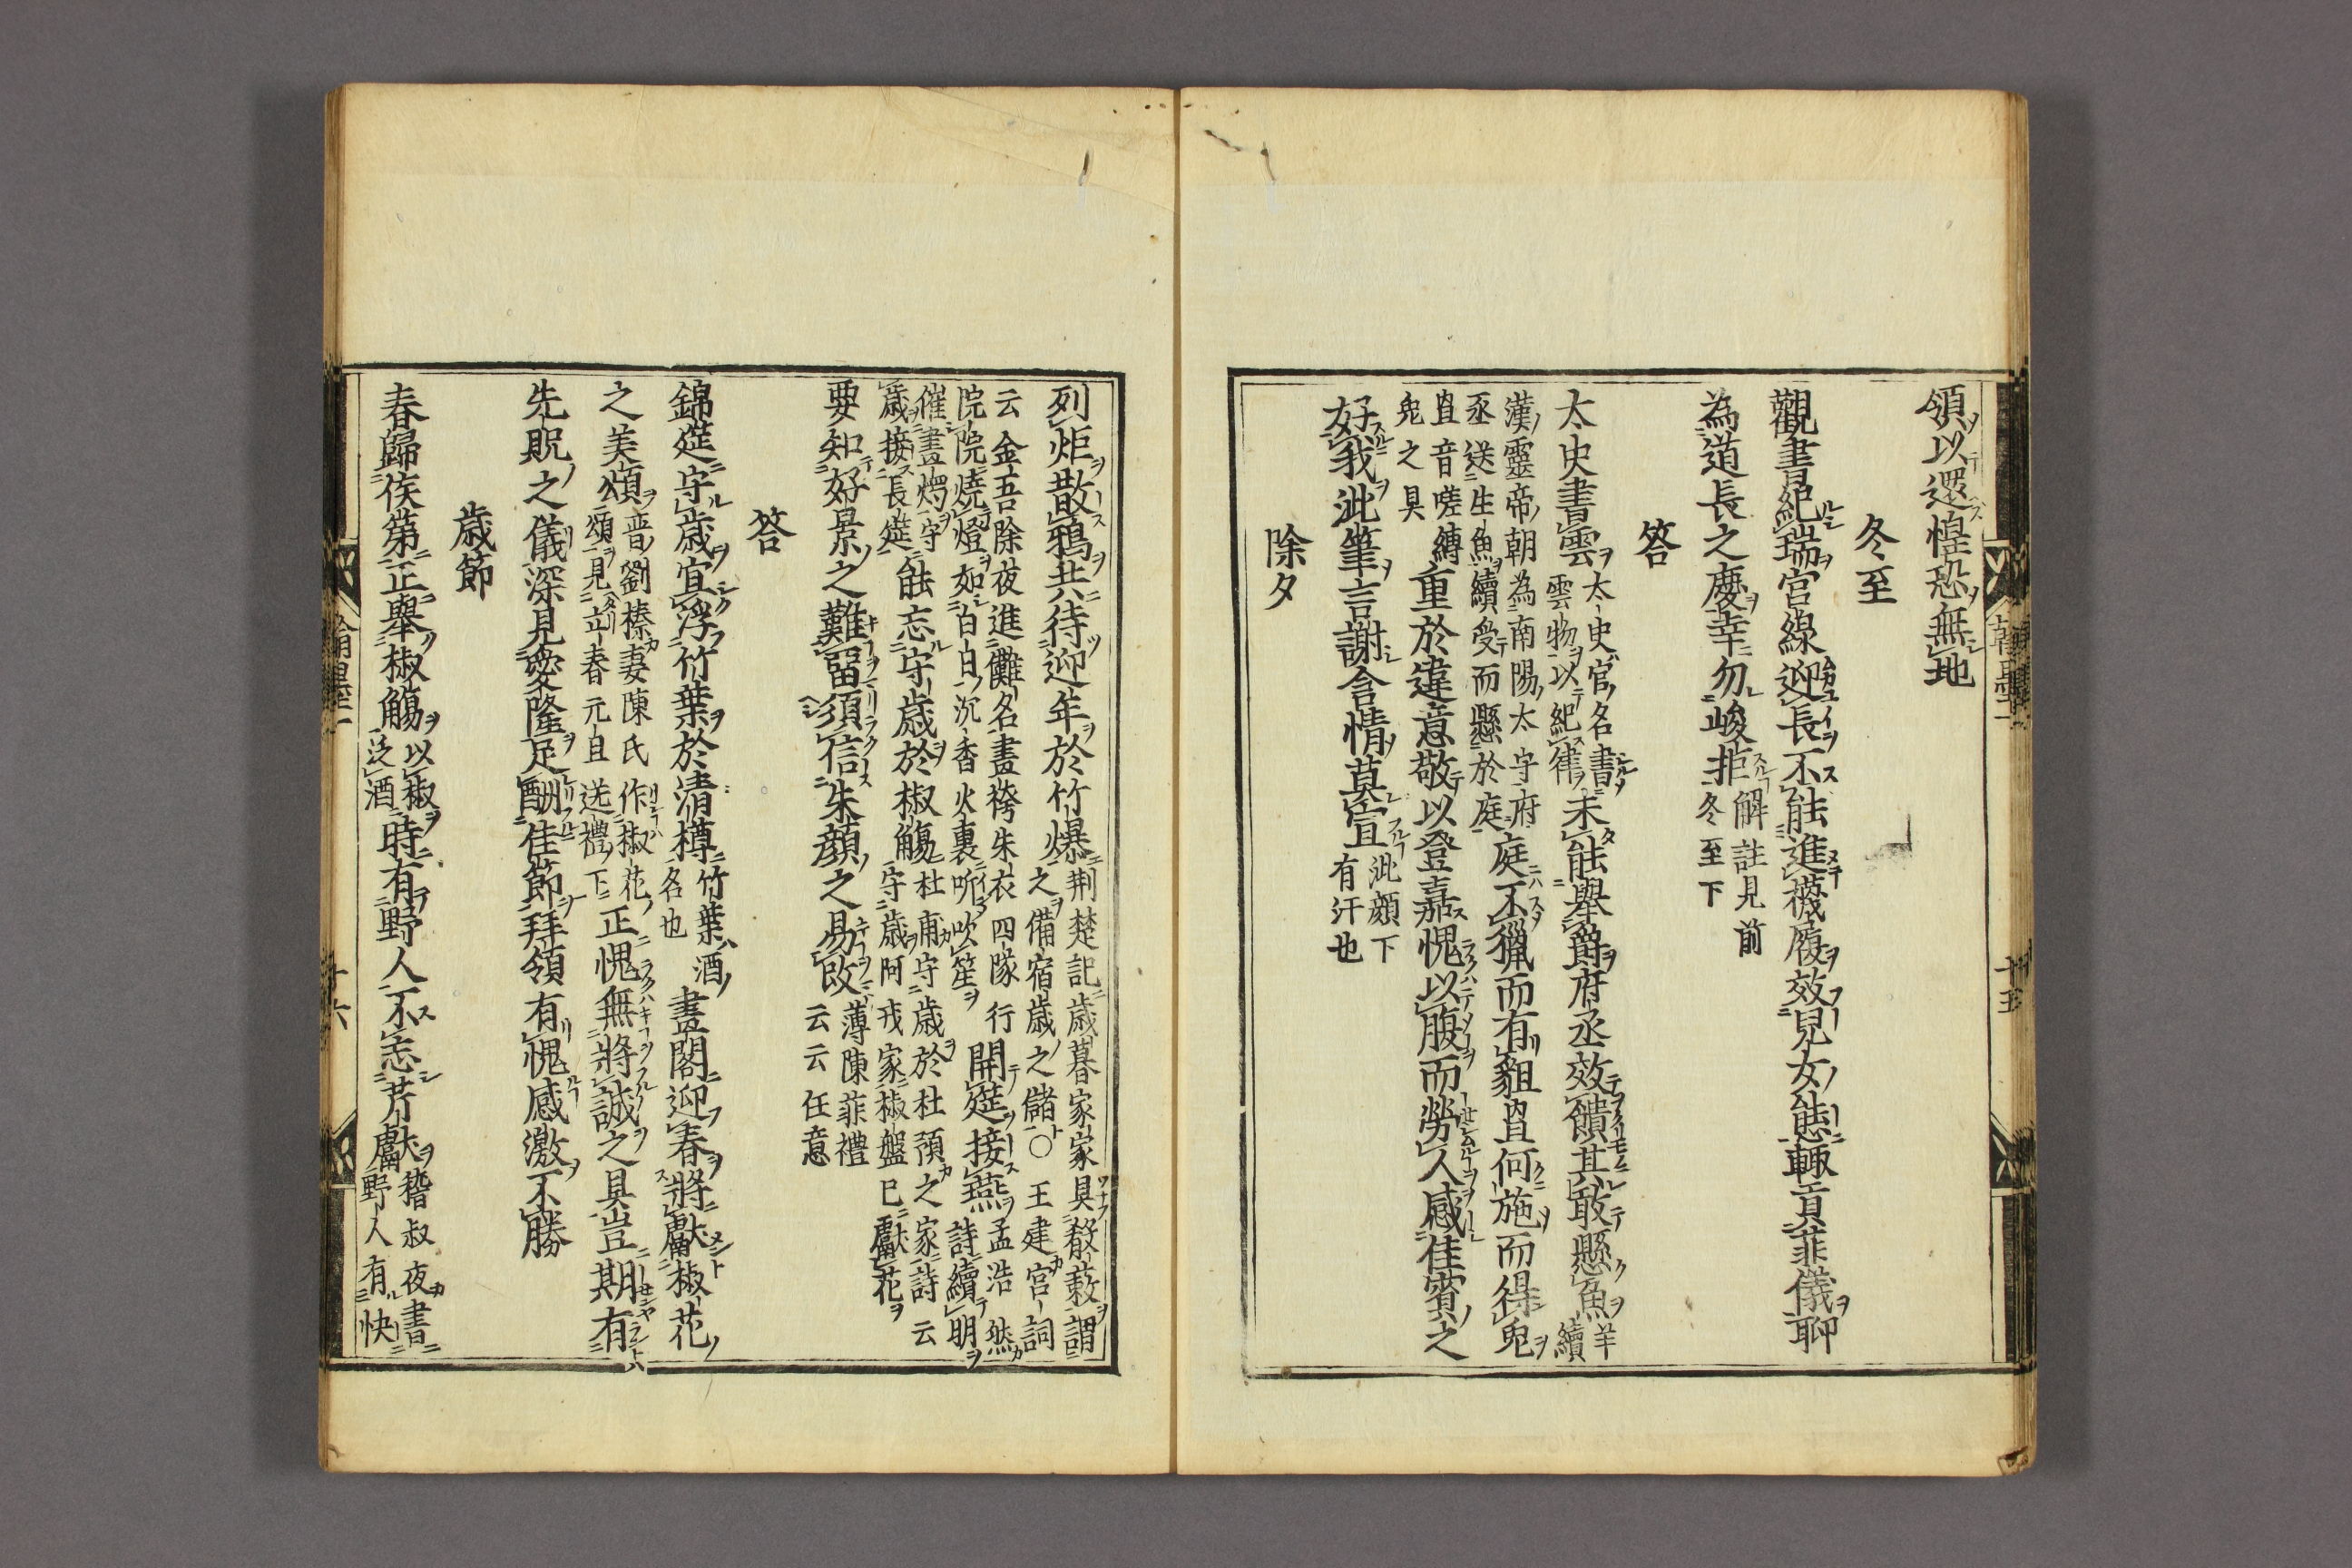 領以還惶恐無地
冬至
觀書紀瑞宮線迎長不能進襪履效兒女態輙貢菲儀聊
為道長之慶幸勿峻拒解註見前
冬至下
答
太史書雲太史官名書
雲物以紀律未能舉爵府丞效饋其敢懸魚羊
續
漢靈帝朝為南陽太守府
丞送生魚續受而懸於庭庭不獵而有貆且何施而得兔
罝音嗟縛
兔之具重於違意敬以登嘉愧以腹而勞人感佳賓之
好我泚筆言謝含情莫宣泚顔下
有汗也
除夕
列炬散鴉共待迎年於竹爆荆楚記歲暮家家具殽蔌謂
之備宿歲之儲○王建宮詞
云金吾除夜進儺名畫袴朱衣四隊行
院院燒燈如白日沉香火裏听吹笙開筵接燕孟浩然
詩續明
催畫燭守
歲接長筵能忘守歲於椒觴杜甫守歲於杜預之家詩云
守歲阿戎家椒盤已獻花
要知好景之難留須信朱顔之易改薄陳菲禮
云云任意
答
錦筵守歲宜浮竹葉於清樽竹葉酒
名也畫閣迎春將獻椒花
之美頌晋劉榛妻陳氏作椒花
頌見立春元旦送禮下正愧無將誠之具豈期有
先貺之儀深見愛隆足酬佳節拜領有愧感激不勝
歲節
春歸侯第正舉椒觴以椒
泛酒時有野人不忘芹獻嵇叔夜書
野人有快
翰墨
十五
翰墨
十六